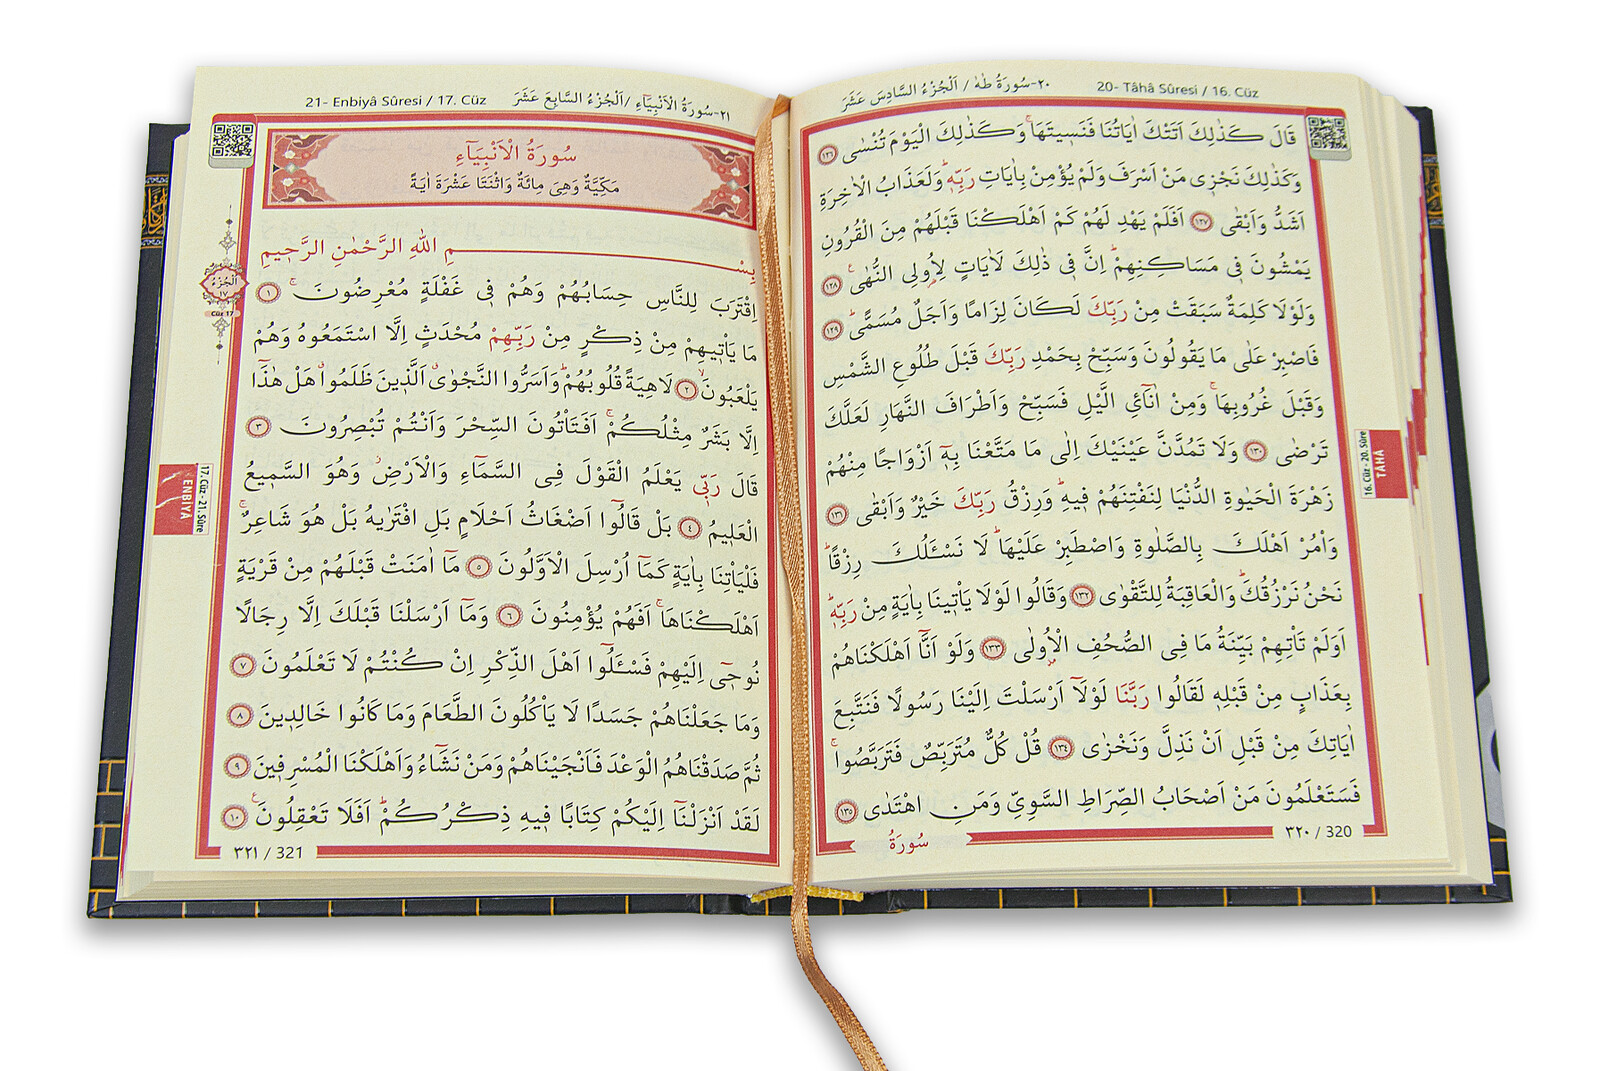 ٢٠-سُورَةُ طٰهٰ / اَلْجُزْءُ السَّادِسَ عَشَرَ 20- Tâhâ Sûresi / 16. Cüz
قَالَ كَذٰلِكَ اَتَتْكَ اٰيَاتُنَا فَنَسٖيتَهَاۚ وَكَذٰلِكَ الْيَوْمَ تُنْسٰى ﴿١٢٦﴾
وَكَذٰلِكَ نَجْزٖى مَنْ اَسْرَفَ وَلَمْ يُؤْمِنْ بِاٰيَاتِ رَبِّهٖؕ وَلَعَذَابُ الْاٰخِرَةِ
اَشَدُّ وَاَبْقٰى ﴿١٢٧﴾ اَفَلَمْ يَهْدِ لَهُمْ كَمْ اَهْلَكْنَا قَبْلَهُمْ مِنَ الْقُرُونِ
يَمْشُونَ فٖى مَسَاكِنِهِمْؕ اِنَّ فٖى ذٰلِكَ لَاٰيَاتٍ لِاُو۬لِى النُّهٰىࣖ ﴿١٢٨﴾
وَلَوْلَا كَلِمَةٌ سَبَقَتْ مِنْ رَبِّكَ لَكَانَ لِزَامًا وَاَجَلٌ مُسَمًّىؕ ﴿١٢٩﴾
فَاصْبِرْ عَلٰى مَا يَقُولُونَ وَسَبِّحْ بِحَمْدِ رَبِّكَ قَبْلَ طُلُوعِ الشَّمْسِ
وَقَبْلَ غُرُوبِهَاۚ وَمِنْ اٰنَٓائِ الَّيْلِ فَسَبِّحْ وَاَطْرَافَ النَّهَارِ لَعَلَّكَ
تَرْضٰى ﴿١٣٠﴾ وَلَا تَمُدَّنَّ عَيْنَيْكَ اِلٰى مَا مَتَّعْنَا بِهٖٓ اَزْوَاجًا مِنْهُمْ
زَهْرَةَ الْحَيٰوةِ الدُّنْيَا لِنَفْتِنَهُمْ فٖيهِؕ وَرِزْقُ رَبِّكَ خَيْرٌ وَاَبْقٰى ﴿١٣١﴾
وَأْمُرْ اَهْلَكَ بِالصَّلٰوةِ وَاصْطَبِرْ عَلَيْهَاؕ لَا نَسْـَٔلُكَ رِزْقًاؕ
نَحْنُ نَرْزُقُكَؕ وَالْعَاقِبَةُ لِلتَّقْوٰى ﴿١٣٢﴾ وَقَالُوا لَوْلَا يَأْتٖينَا بِاٰيَةٍ مِنْ رَبِّهٖؕ
اَوَلَمْ تَأْتِهِمْ بَيِّنَةُ مَا فِى الصُّحُفِ الْاُو۫لٰى ﴿١٣٣﴾ وَلَوْ اَنَّٓا اَهْلَكْنَاهُمْ
بِعَذَابٍ مِنْ قَبْلِهٖ لَقَالُوا رَبَّنَا لَوْلَٓا اَرْسَلْتَ اِلَيْنَا رَسُولًا فَنَتَّبِعَ
اٰيَاتِكَ مِنْ قَبْلِ اَنْ نَذِلَّ وَنَخْزٰى ﴿١٣٤﴾ قُلْ كُلٌّ مُتَرَبِّصٌ فَتَرَبَّصُواۚ
فَسَتَعْلَمُونَ مَنْ اَصْحَابُ الصِّرَاطِ السَّوِىِّ وَمَنِ اهْتَدٰى ﴿١٣٥﴾
٣٢٠ / 320
سُورَةُ
16. Cüz - 20. Sûre
TÂHÂ
٢١-سُورَةُ الْاَنْبِيَٓاءِ / اَلْجُزْءُ السَّابِعَ عَشَرَ 21- Enbiyâ Sûresi / 17. Cüz
سُورَةُ الْاَنْبِيَٓاءِ
مَكِّيَّةٌ وَهِىَ مِائَةٌ وَاثْنَتَا عَشْرَةَ اٰيَةً
بِسْمِ اللّٰهِ الرَّحْمٰنِ الرَّحٖيمِ
اِقْتَرَبَ لِلنَّاسِ حِسَابُهُمْ وَهُمْ فٖى غَفْلَةٍ مُعْرِضُونَۚ ﴿١﴾
مَا يَأْتٖيهِمْ مِنْ ذِكْرٍ مِنْ رَبِّهِمْ مُحْدَثٍ اِلَّا اسْتَمَعُوهُ وَهُمْ
يَلْعَبُونَۙ ﴿٢﴾ لَاهِيَةً قُلُوبُهُمْؕ وَاَسَرُّوا النَّجْوٰىۗ اَلَّذٖينَ ظَلَمُواۗ هَلْ هٰذَٓا
اِلَّا بَشَرٌ مِثْلُكُمْۚ اَفَتَأْتُونَ السِّحْرَ وَاَنْتُمْ تُبْصِرُونَ ﴿٣﴾
قَالَ رَبّٖى يَعْلَمُ الْقَوْلَ فِى السَّمَٓاءِ وَالْاَرْضِۘ وَهُوَ السَّمٖيعُ
الْعَلٖيمُ ﴿٤﴾ بَلْ قَالُٓوا اَضْغَاثُ اَحْلَامٍ بَلِ افْتَرٰيهُ بَلْ هُوَ شَاعِرٌۚ
فَلْيَأْتِنَا بِاٰيَةٍ كَمَٓا اُرْسِلَ الْاَوَّلُونَ ﴿٥﴾ مَٓا اٰمَنَتْ قَبْلَهُمْ مِنْ قَرْيَةٍ
اَهْلَكْنَاهَاۚ اَفَهُمْ يُؤْمِنُونَ ﴿٦﴾ وَمَٓا اَرْسَلْنَا قَبْلَكَ اِلَّا رِجَالًا
نُوحٖٓى اِلَيْهِمْ فَسْـَٔلُٓوا اَهْلَ الذِّكْرِ اِنْ كُنْتُمْ لَا تَعْلَمُونَ ﴿٧﴾
وَمَا جَعَلْنَاهُمْ جَسَدًا لَا يَأْكُلُونَ الطَّعَامَ وَمَا كَانُوا خَالِدٖينَ ﴿٨﴾
ثُمَّ صَدَقْنَاهُمُ الْوَعْدَ فَاَنْجَيْنَاهُمْ وَمَنْ نَشَٓاءُ وَاَهْلَكْنَا الْمُسْرِفٖينَ ﴿٩﴾
لَقَدْ اَنْزَلْنَٓا اِلَيْكُمْ كِتَابًا فٖيهِ ذِكْرُكُمْؕ اَفَلَا تَعْقِلُونَࣖ ﴿١٠﴾
٣٢١ / 321
اَلْجُزْءُ
١٧
Cüz 17
17. Cüz - 21. Sûre
ENBİYÂ